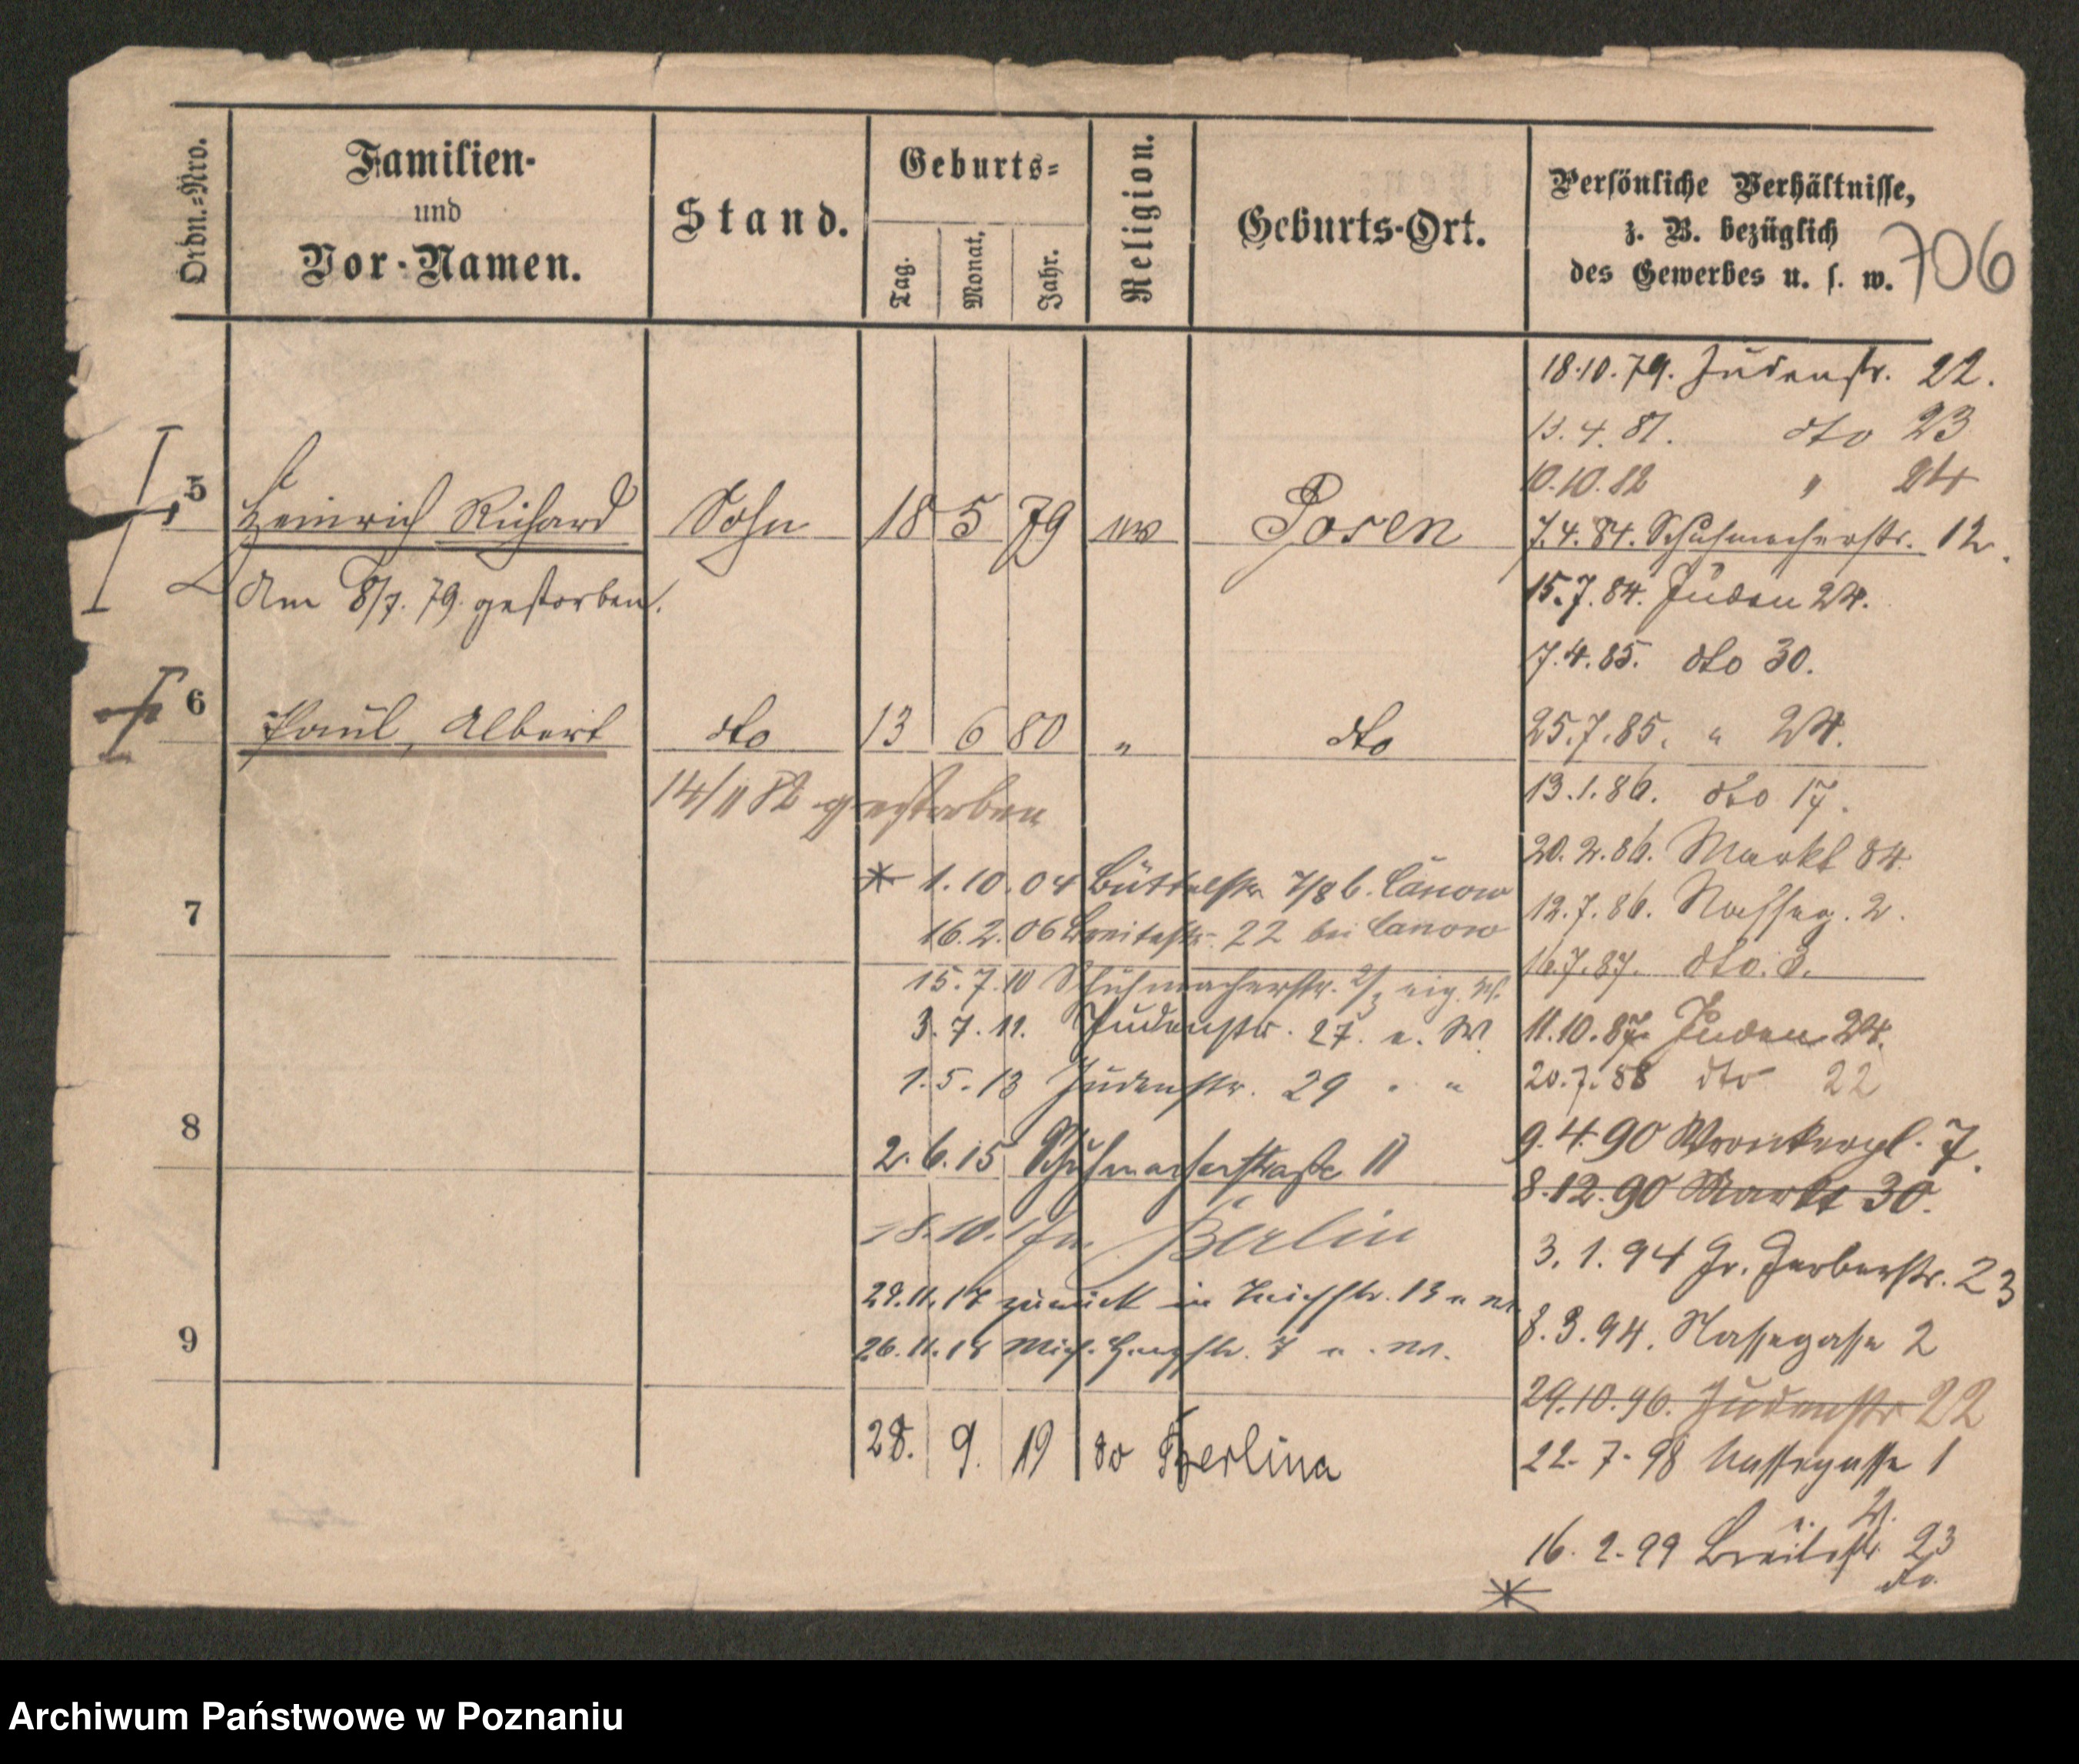 Ordn.-Nro.
Familien-
und
Vor-Namen.
Stand.
Geburts-
Tag.
Monat.
Jahr.
Religion.
Geburts-Ort.
Persönliche Verhältnisse,
z. B. bezüglich
des Gewerbes u. s. w.
706
5
Heinrich Richard Sohn 18 5 79 Posen
am 8/7. 79. gestorben.
6
Paul, Albert dto 13 6 80 " dto
14/11 82 gestorben
7
8
9
* 1.10.04 Büttelstr. 7/8 b. Canow
16.2.06 Breitestr. 22 bei Canow
15.7.10 Schuhmacherstr. eig. W.
3.7.11. Judenstr. 27. e. W.
1.5.13 Judenstr. 29 " "
2.6.15 Schuhmacherstraße 11
18.10.17 n. Berlin
29.11.17 zurück in 13
26.11.18 7
28. 9. 19 do Berlina
18.10.79. Judenstr. 22.
13.4.81. dto 23
10.10.82 " 24
7.4.84. Schuhmacherstr. 12.
15.7.84. Juden 24.
7.4.85. dto 30.
25.7.85. " 24.
13.1.86. dto 17.
20.2.86. Markt 84.
12.7.86. Nasseg. 2.
16.7.87. dto. 3.
11.10.87. Juden 24.
20.7.88 dto 22
9.4.90 Wronkerpl. 7.
8.12.90 Markt 30.
3.1.94 Gr. Gerberstr. 23
8.3.94. Nassegasse 2
29.10.96. Judenstr 22
22.7.98 Nassegasse 1
16.2.99 Breitestr 23
*
Archiwum Państwowe w Poznaniu